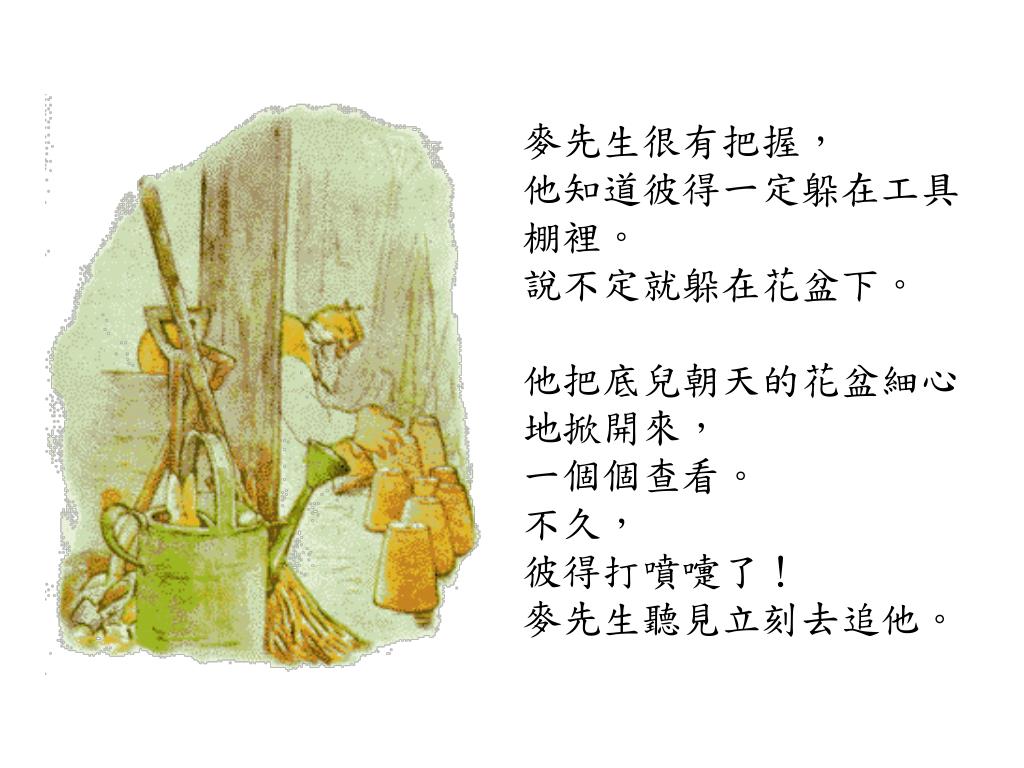 麥先生很有把握，
他知道彼得一定躲在工具
棚裡。
說不定就躲在花盆下。
他把底兒朝天的花盆細心
地掀開來，
一個個查看。
不久，
彼得打噴嚏了！
麥先生聽見立刻去追他。